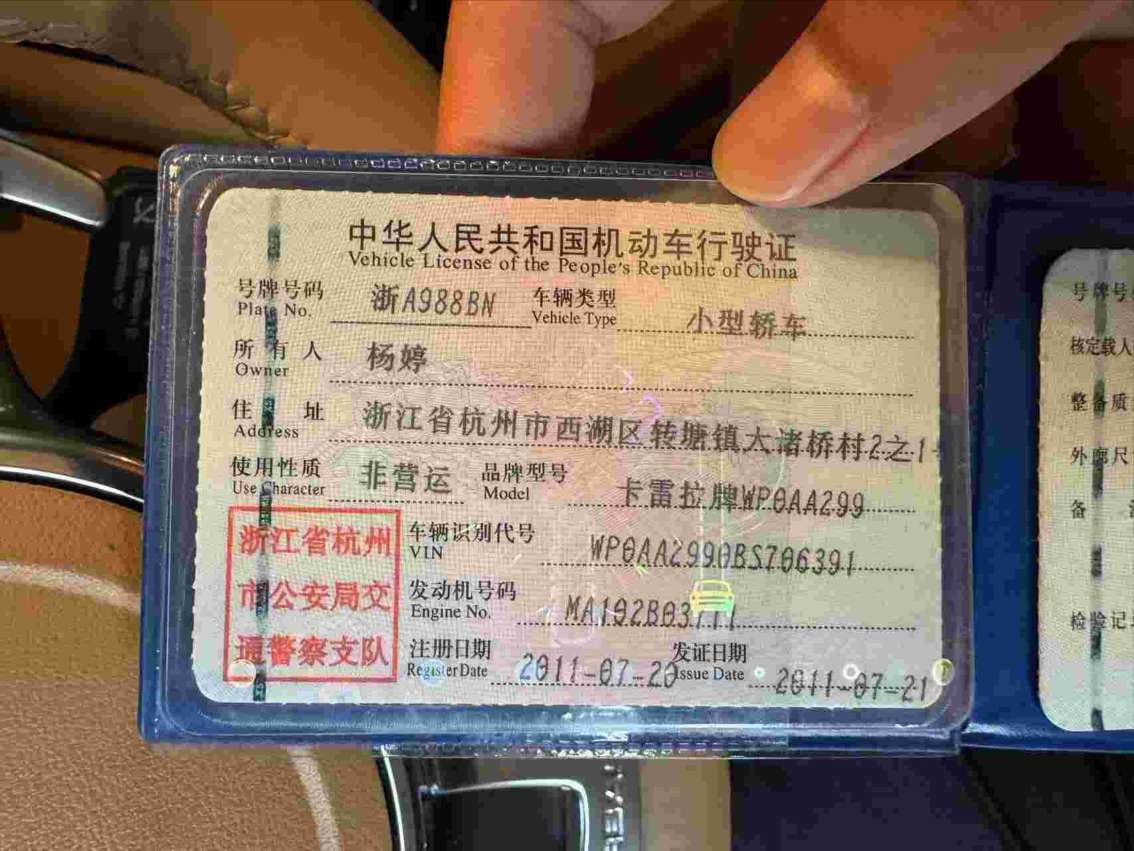 中华人民共和国机动车行驶证
Vehicle License of the People's Republic of China
号牌号码 浙A988BN 车辆类型 小型轿车
Plate No. Vehicle Type
所有人 杨婷
Owner
住址 浙江省杭州市西湖区转塘镇大诸桥村2之1
Address
使用性质 非营运 品牌型号 卡雷拉牌WP0AA299
Use Character Model
浙江省杭州
市公安局交
通警察支队
车辆识别代号 WP0AA2990BS706391
VIN
发动机号码
Engine No.
注册日期 2011-07-20 发证日期 2011-07-21
Register Date Issue Date
号牌号
核定载人
整备质
外廓尺
备
检验记